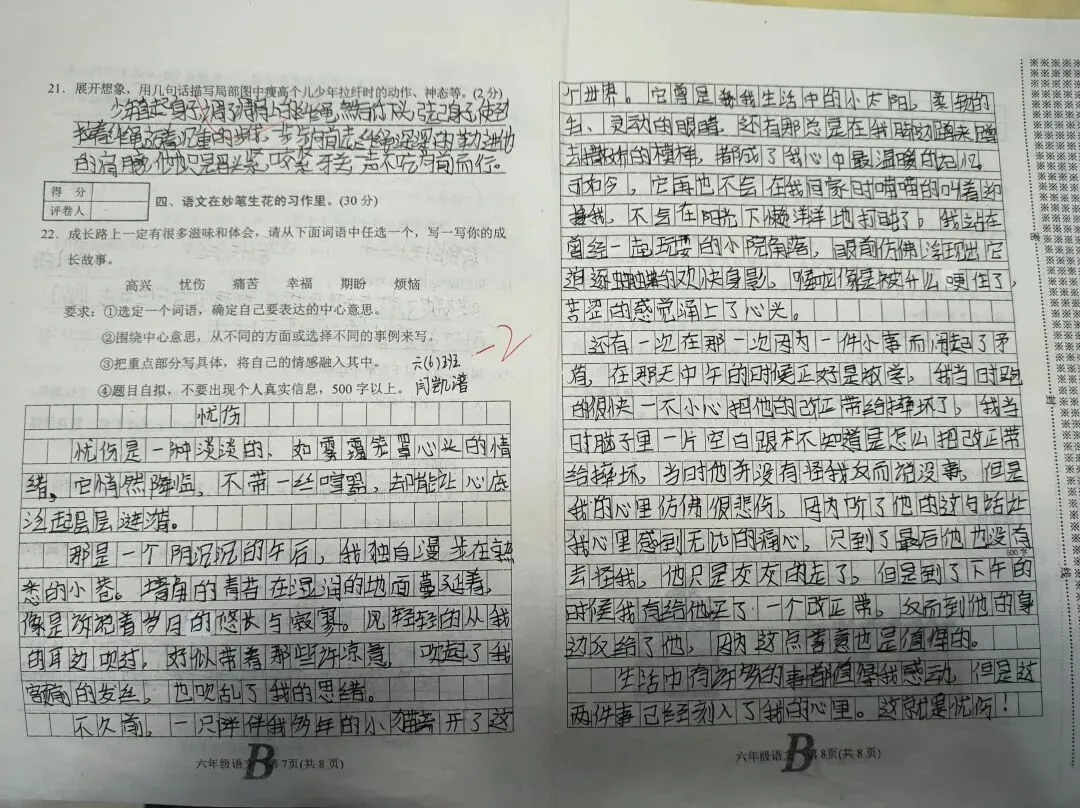 21. 展开想象，用几句话描写局部图中瘦高个儿少年拉纤时的动作、神态等。(2分)
少年
的肩膀，他也只是眉头紧
得 分
评卷人
四、语文在妙笔生花的习作里。(30 分)
22. 成长路上一定有很多滋味和体会，请从下面词语中任选一个，写一写你的成
长故事。
高兴 忧伤 痛苦 幸福 期盼 烦恼
要求：①选定一个词语，确定自己要表达的中心意思。
②围绕中心意思，从不同的方面或选择不同的事例来写。
③把重点部分写具体，将自己的情感融入其中。
④题目自拟，不要出现个人真实信息，500 字以上。
-2
六(6)班
闫凯谱
忧伤
忧伤是一种淡淡的、如雾霭笼罩心头的情
绪，它悄然降临，不带一丝喧嚣，却能让心底
泛起层层涟漪。
那是一个阴沉沉的午后，我独自漫步在熟
悉的小巷。墙角的青苔在湿润的地面蔓延着，
像是诉说着岁月的悠长与寂寥。风轻轻的从我
的耳边吹过，好似带着那些许凉意，吹起了我
的发丝，也吹乱了我的思绪。
不久前，一只陪伴我多年的小猫离开了这
六年级语文 B 第7页(共8页)
个世界。它曾是我生活中的小太阳，柔软的
毛、灵动的眼睛，还有那总是在我脚边蹭来蹭
去撒娇的模样，都成了我心中最温暖的记忆。
可如今，它再也不会在我回家时喵喵的叫着迎
接我，不会在阳光下懒洋洋地打盹了，我站在
曾经一起玩耍的小院角落，眼前仿佛浮现出它
追逐蝴蝶的欢快身影，喉咙像是被什么哽住了，
苦涩的感觉涌上了心头。
还有一次在那一次因为一件小事而闹起了矛
盾，在那天中午的时候正好是放学，我当时跑
的很快一不小心把他的改正带给摔坏了，我当
时脑子里一片空白跟本不知道是怎么把改正带
给摔坏，当时他并没有怪我反而说没事，但是
我的心里仿佛很悲伤，因为听了他的这句话让
我心里感到无比的痛心，只到了最后他也没有
500字
去怪我，他只是灰灰的走了，但是到了下午的
时候我有给他买了一个改正带，反而到他的身
边又给了他，因为这点善意也是值得的。
生活中有许多的事都值得我感动，但是这
两件事已经刻入了我的心里。这就是忧伤！
六年级语文 B 第8页(共8页)
密
封
线